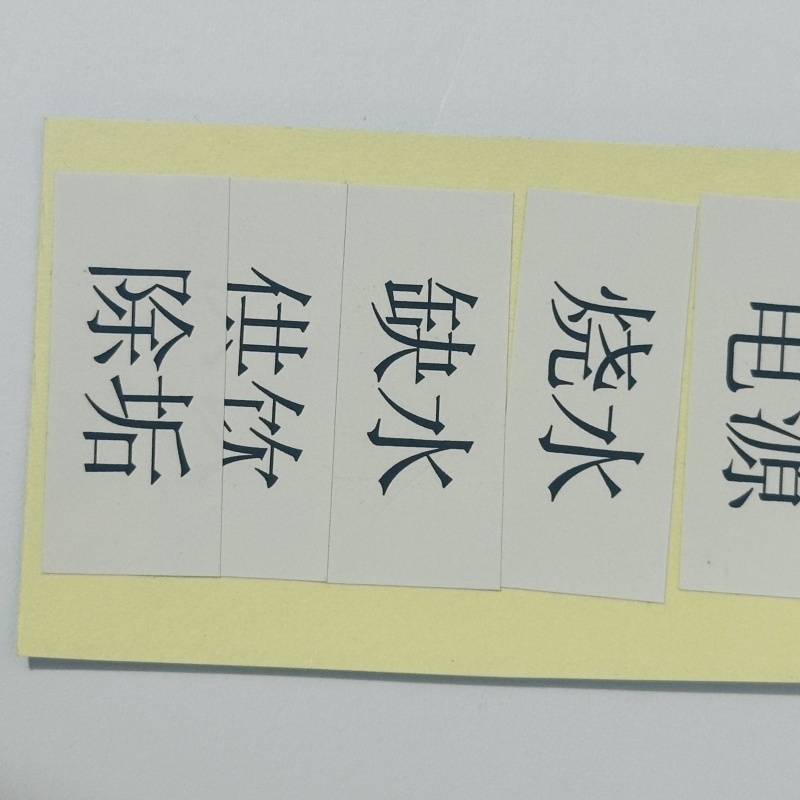 除垢
供饮
缺水
烧水
电源